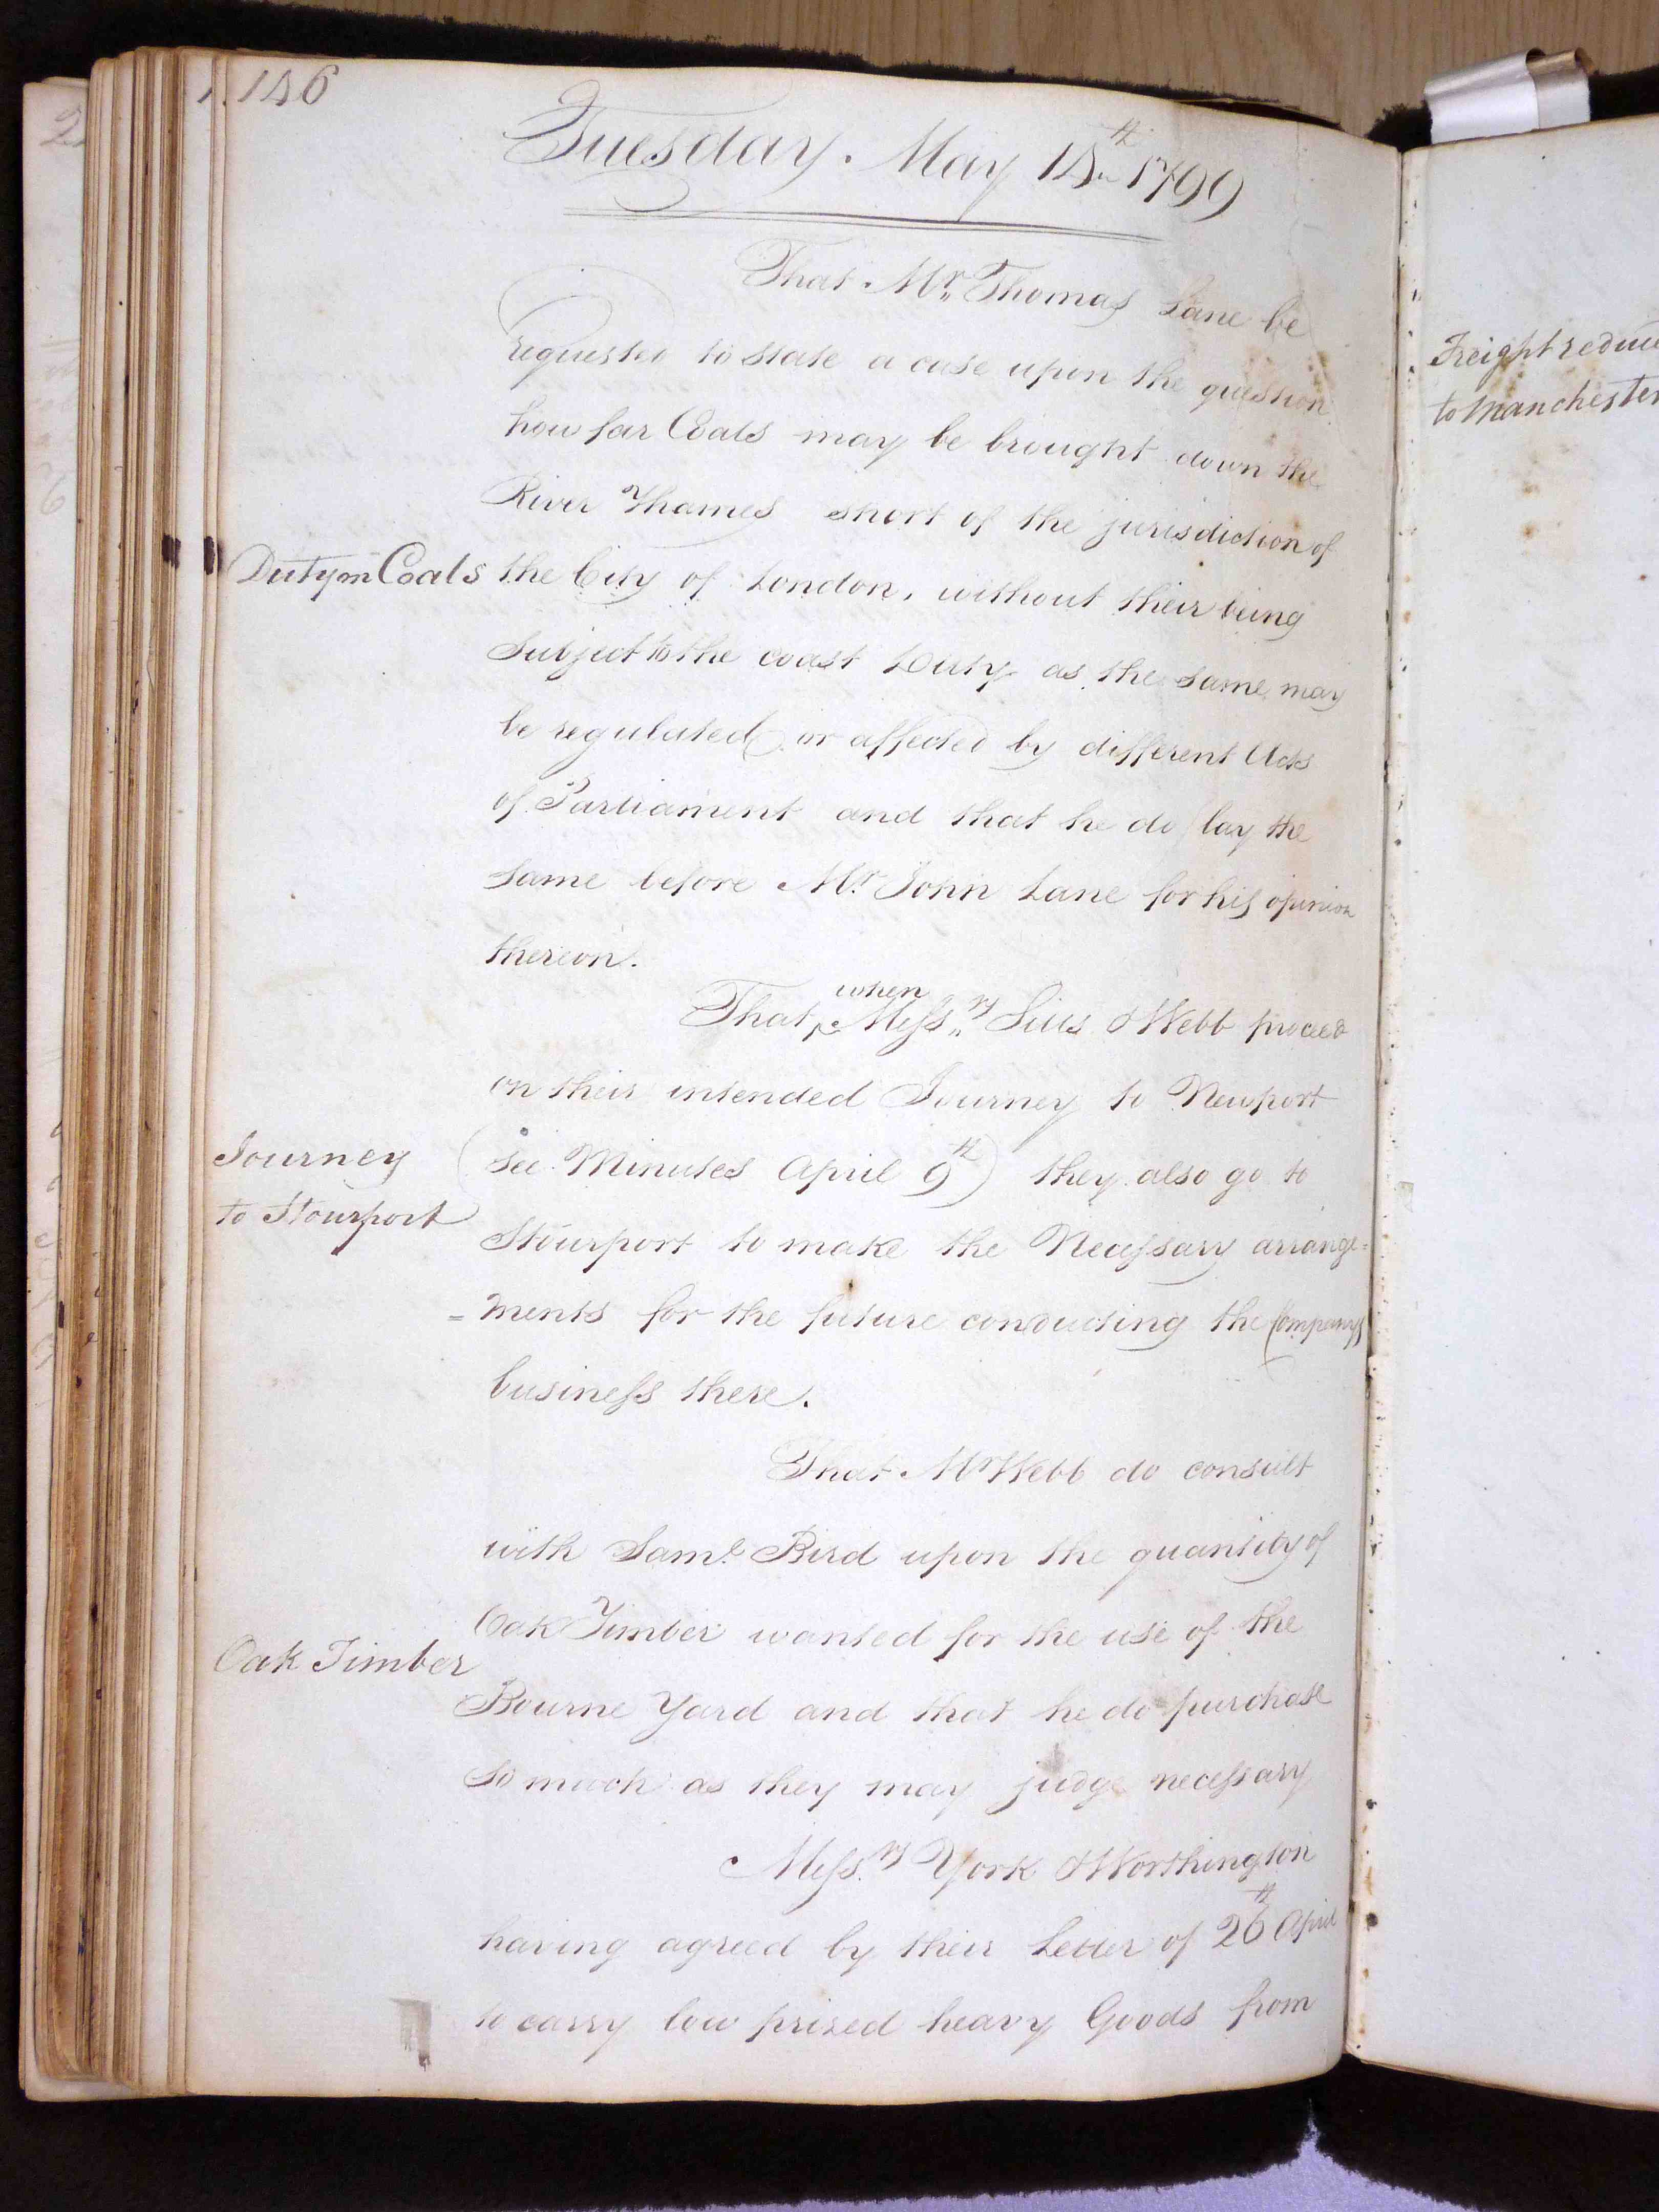 146
Tuesday. May 14th 1799
That Mr Thomas Lane be
requested to state a case upon the question
how far Coals may be brought down the
River Thames short of the jurisdiction of
Duty on Coals
the City of London, without their being
subject to the coast Duty as the same may
be regulated or affected by different Acts
of Parliament and that he do lay the
same before Mr John Lane for his opinion
thereon.
That, when Messrs Sills & Webb proceed
on their intended Journey to Newport
Journey
to Stourport
(see Minutes April 9th) they also go to
Stourport to make the Necessary arrange=
=ments for the future conducting the Companys
business there.
That Mr Webb do consult
with Saml Bird upon the quantity of
Oak Timber
Oak Timber wanted for the use of the
Bourne Yard and that he do purchase
so much as they may judge necessary
Messrs York & Worthington
having agreed by their Letter of 26th April
to carry low prized heavy Goods from
Freight reduce
to Manchester